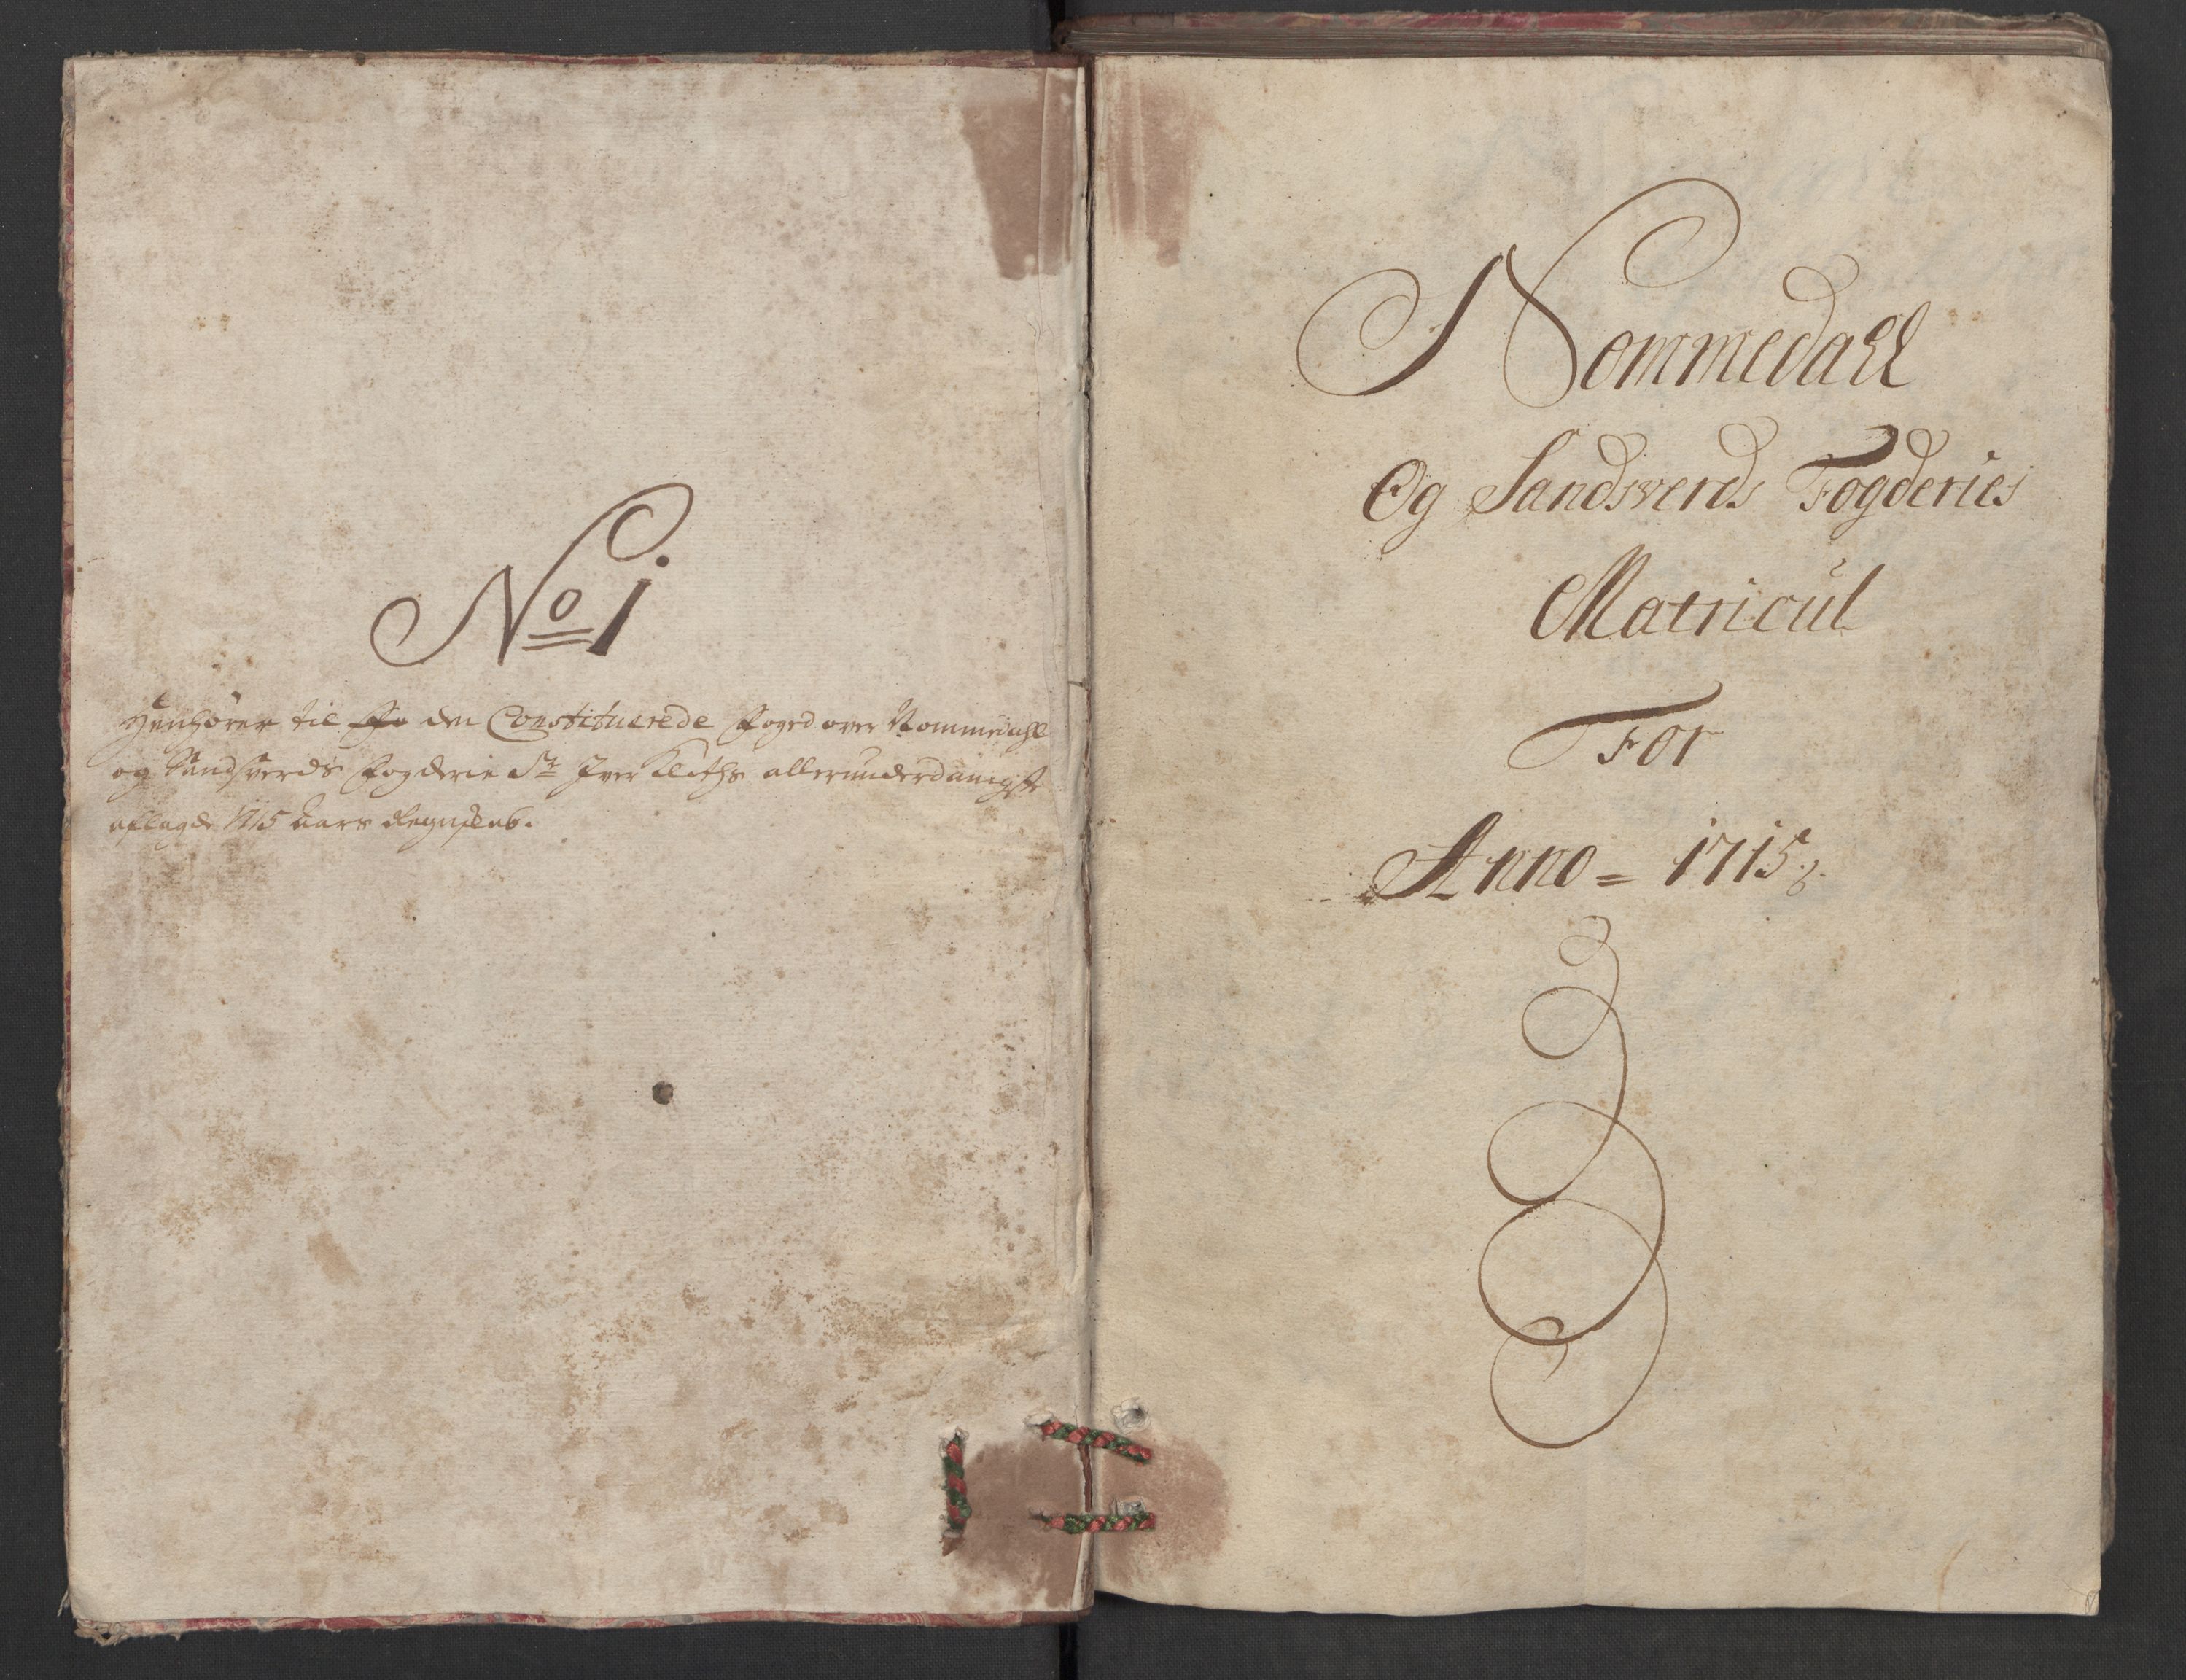 No i
Henhører til den Constituerede Foged over Nommedahl
og Sandsverds Fogderie Sr Iver allerunderdanigste
aflagde 1715 Aars Regnskab.
Nommedall
Og Sandsverds Fogderies
Matricul
For
Anno = 1715